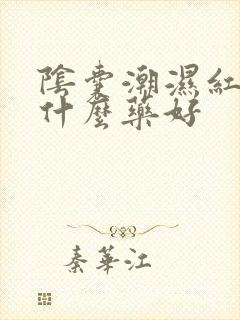 陰囊潮濕紅
什麼藥好
秦華江